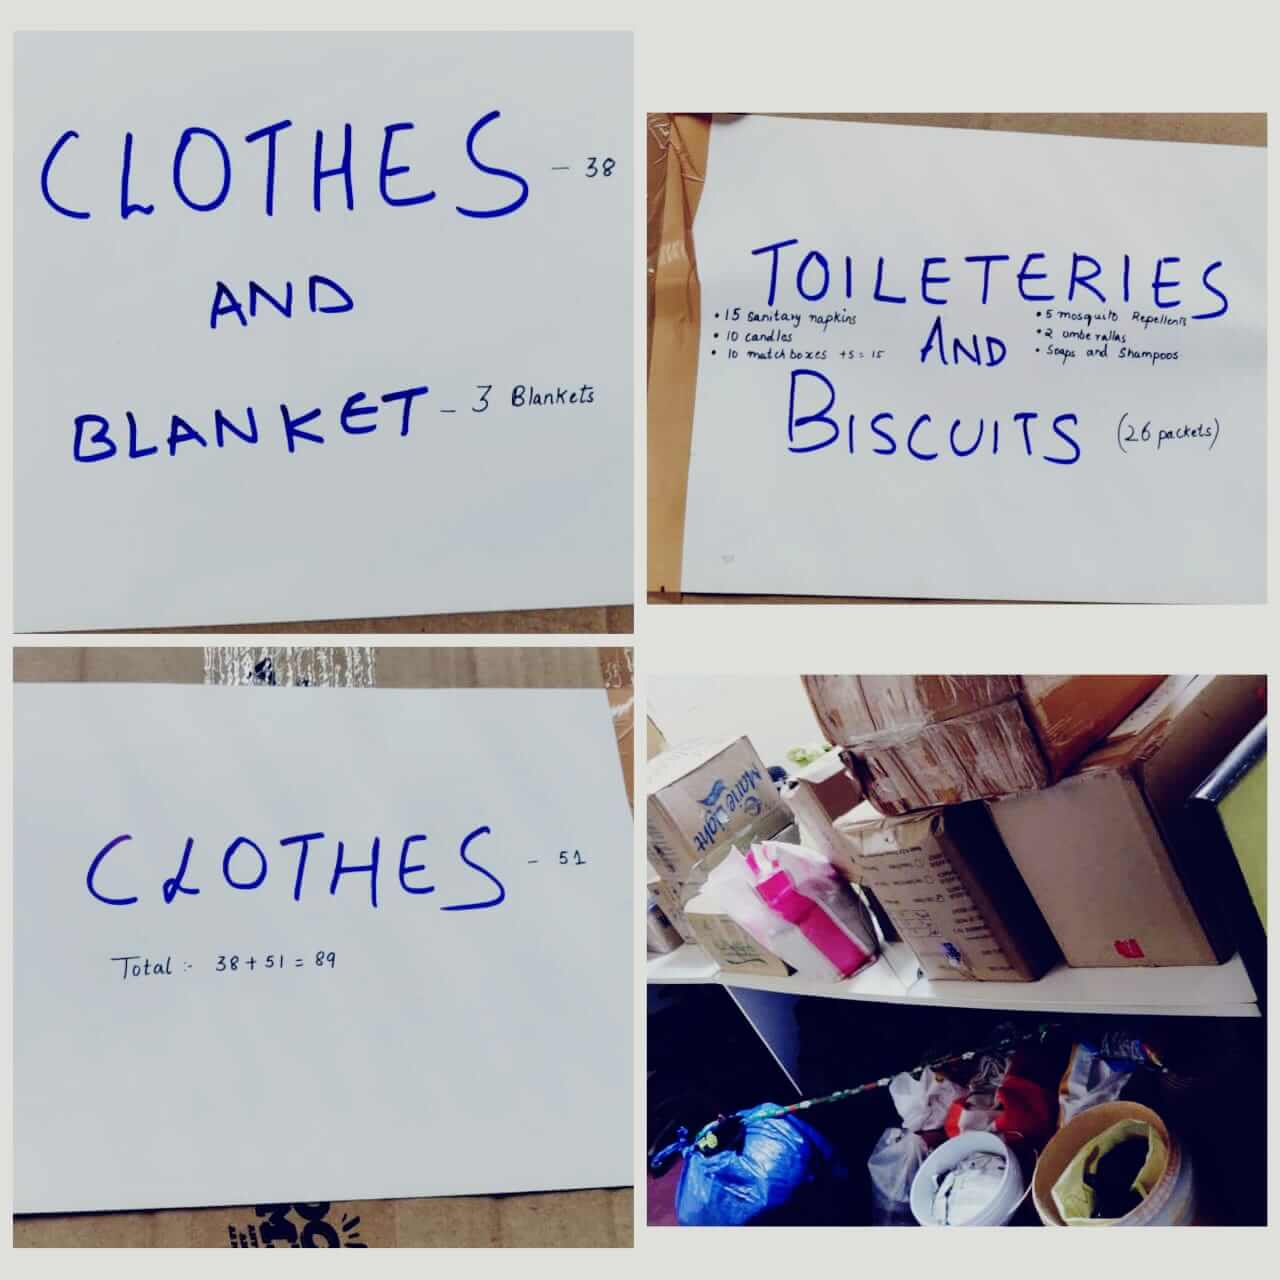 CLOTHES – 38
AND
BLANKET – 3 Blankets
TOILETERIES
• 15 sanitary napkins
• 10 candles
• 10 match boxes +5 = 15
AND
• 5 mosquito Repellents
• 2 umberallas
• Soaps and Shampoos
BISCUITS (26 packets)
CLOTHES – 51
Total :- 38 + 51 = 89
Marie Light